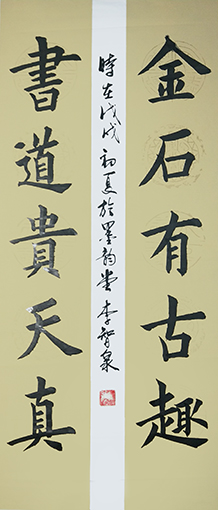 金石有古趣
書道貴天真
時在戊戌初夏於墨韵堂李智泉